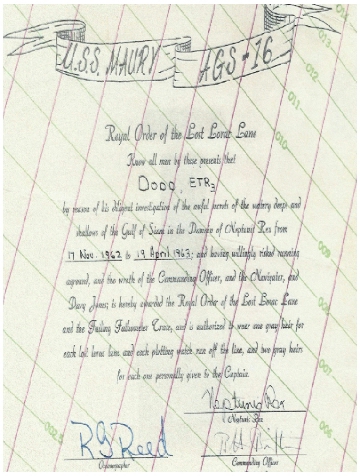 U.S.S. MAURY AGS-16
Royal Order of the Lost Lorac Lane
Know all men by these presents that
DODD, ETR3
by reason of his diligent investigation of the awful perils of the watery deeps and
shallows of the Gulf of Siam in the Domain of Neptunus Rex from
17 Nov. 1962 to 19 April 1963; and having willingly risked running
aground, and the wrath of the Commanding Officer, and the Navigator, and
Davy Jones; is hereby awarded the Royal Order of the Lost Lorac Lane
and the Failing Fathometer Trace, and is authorized to wear one gray hair for
each lost lorac lane and each plotting watch run off the line, and two gray hairs
for each one personally given to the Captain.
Neptunus Rex
Neptunus Rex
RG Reed
Oceanographer
Commanding Officer
014
013
012
011
010
009
007
006